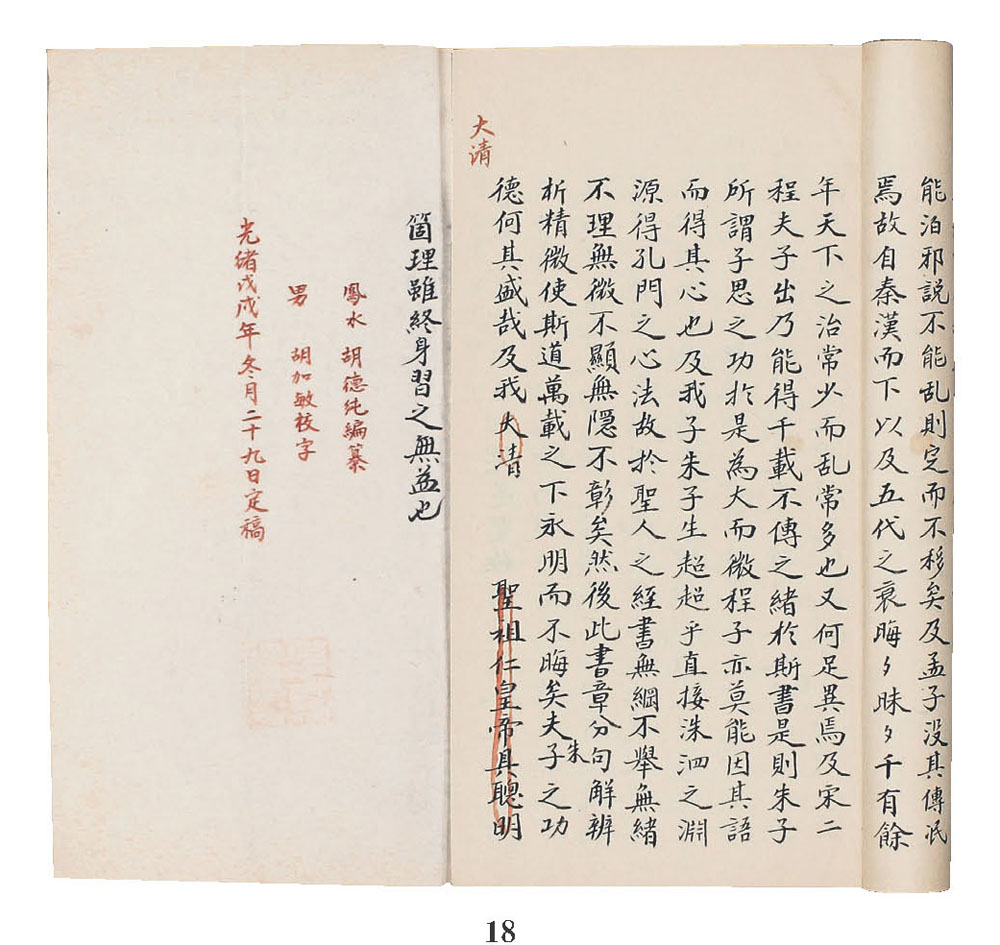 能泊邪説不能乱則定而不移矣及孟子没其傳泯
焉故自秦漢而下以及五代之衰晦〻昧〻千有餘
年天下之治常少而乱常多也又何足異焉及宋二
程夫子出乃能得千載不傳之緒於斯書是則朱子
所謂子思之功於是為大而微程子亦莫能因其語
而得其心也及我子朱子生超超乎直接洙泗之淵
源得孔門之心法故於聖人之經書無綱不舉無緒
不理無微不顯無隠不彰矣然後此書章分句解辨
析精微使斯道萬載之下永明而不晦矣夫朱子之功
德何其盛哉及我大清 聖祖仁皇帝具聰明
大清
箇理雖終身習之無益也
鳳水 胡德純編纂
男 胡加敏校字
光緒戊戌年冬月二十九日定稿
18